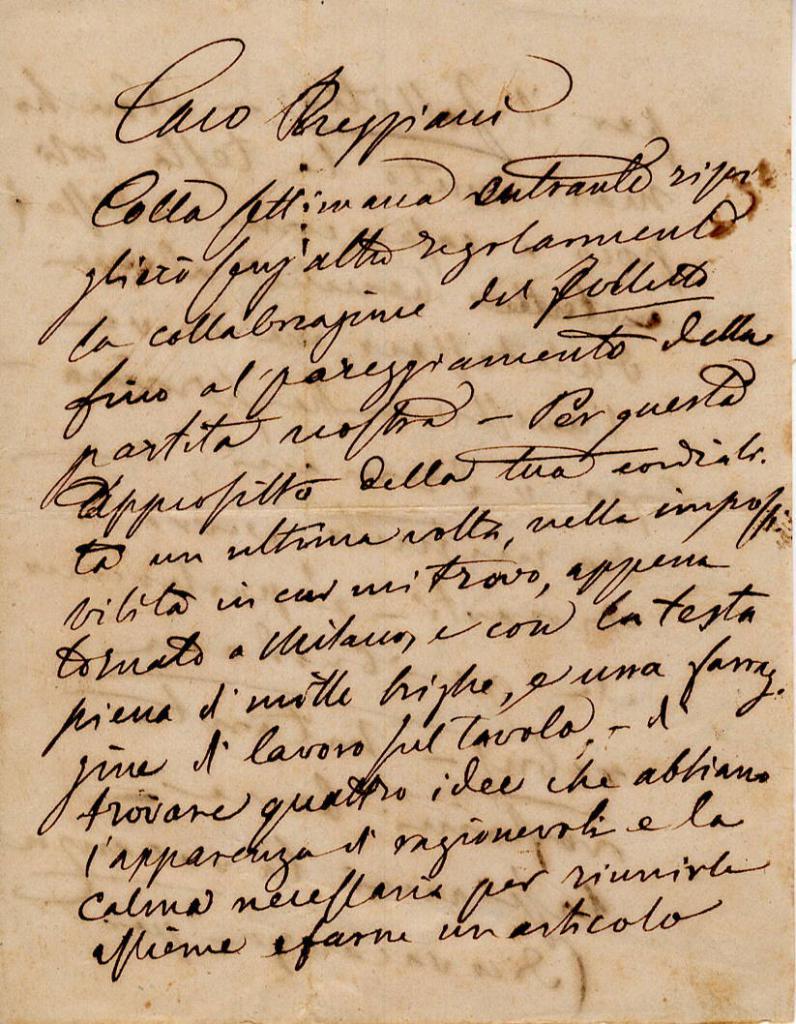 Caro Reggiani
Colla settimana entrante ripi-
glierò senz'altro regolarmente
la collaborazione del Folletto
fino al pareggiamento della
partita nostra — Per questa
approfitto della tua cordiali-
tà un ultima volta, nella impossi-
bilità in cui mi trovo, appena
tornato a Milano, e con la testa
piena di molte brighe, e una farrag-
gine di lavoro sul tavolo, – di
trovare quattro idee che abbiano
l'apparenza di ragionevoli e la
calma necessaria per riunirle
assieme e farne un articolo